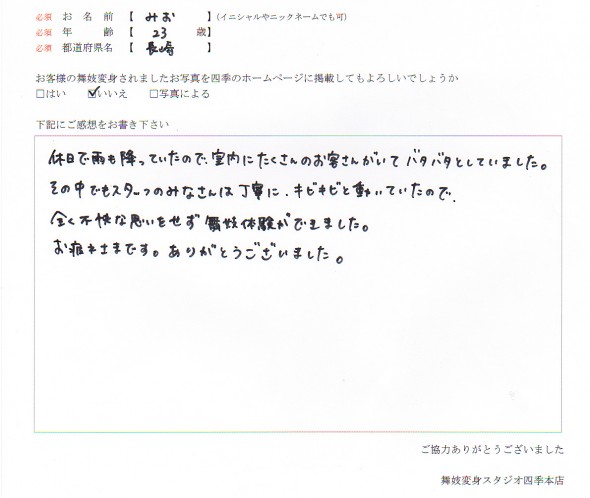 必須 お 名 前 【 みお 】(イニシャルやニックネームでも可)
必須 年 齢 【 23 歳】
必須 都道府県名 【 長崎 】
お客様の舞妓変身されましたお写真を四季のホームページに掲載してもよろしいでしょうか
□はい ☑いいえ □写真による
下記にご感想をお書き下さい
休日で雨も降っていたので、室内にたくさんのお客さんがいてバタバタとしていました。
その中でもスタッフのみなさんは丁寧に、キビキビと動いていたので、
全く不快な思いをせず舞妓体験ができました。
お疲れさまです。ありがとうございました。
ご協力ありがとうございました
舞妓変身スタジオ四季本店